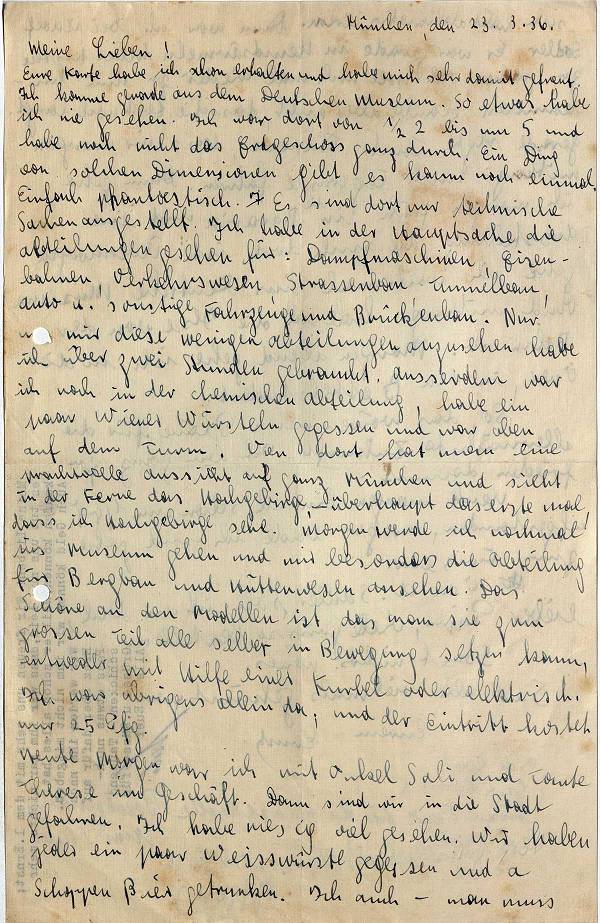 München den 23. 3. 36.
Meine Lieben!
Eure Karte habe ich schon erhalten und habe mich sehr damit gefreut.
Ich komme gerade aus dem Deutschen Museum. So etwas habe
ich nie gesehen. Ich war dort von 1/2 2 bis um 5 und
habe noch nicht das Erdgeschoss ganz durch. Ein Ding
von solchen Dimensionen gibt es kaum noch einmal.
Einfach phantastisch. Es sind dort nur technische
Sachen ausgestellt. Ich habe in der Hauptsache die
Abteilungen gesehen für: Dampfmaschinen, Eisen-
bahnen, Verkehrswesen, Strassenbau, Tunnelbau,
Auto u. sonstige Fahrzeuge und Brückenbau. Nur
mir diese wenigen Abteilungen anzusehen habe
ich über zwei Stunden gebraucht, ausserdem war
ich noch in der chemischen Abteilung, habe ein
paar Wiener Würsteln gegessen und war oben
auf dem Turm. Von dort hat man eine
prachtvolle Aussicht auf ganz München und sieht
in der Ferne das Hochgebirge – überhaupt das erste mal,
dass ich Hochgebirge sehe. Morgen werde ich nochmal
ins Museum gehen und mir besonders die Abteilung
für Bergbau und Hüttenwesen ansehen. Das
Schöne an den Modellen ist das man sie zum
grossen Teil alle selber in Bewegung setzen kann,
entweder mit Hilfe einer Kurbel oder elektrisch.
Ich war übrigens allein da, und der Eintritt kostet
nur 25 Pfg.
Heute Morgen war ich mit Onkel Sali und Tante
Therese im Geschäft. Dann sind wir in die Stadt
gefahren. Ich habe viel gesehen. Wir haben
jeder ein paar Weisswürstl gegessen und a
Schoppen Bier getrunken. Ich auch – man muss